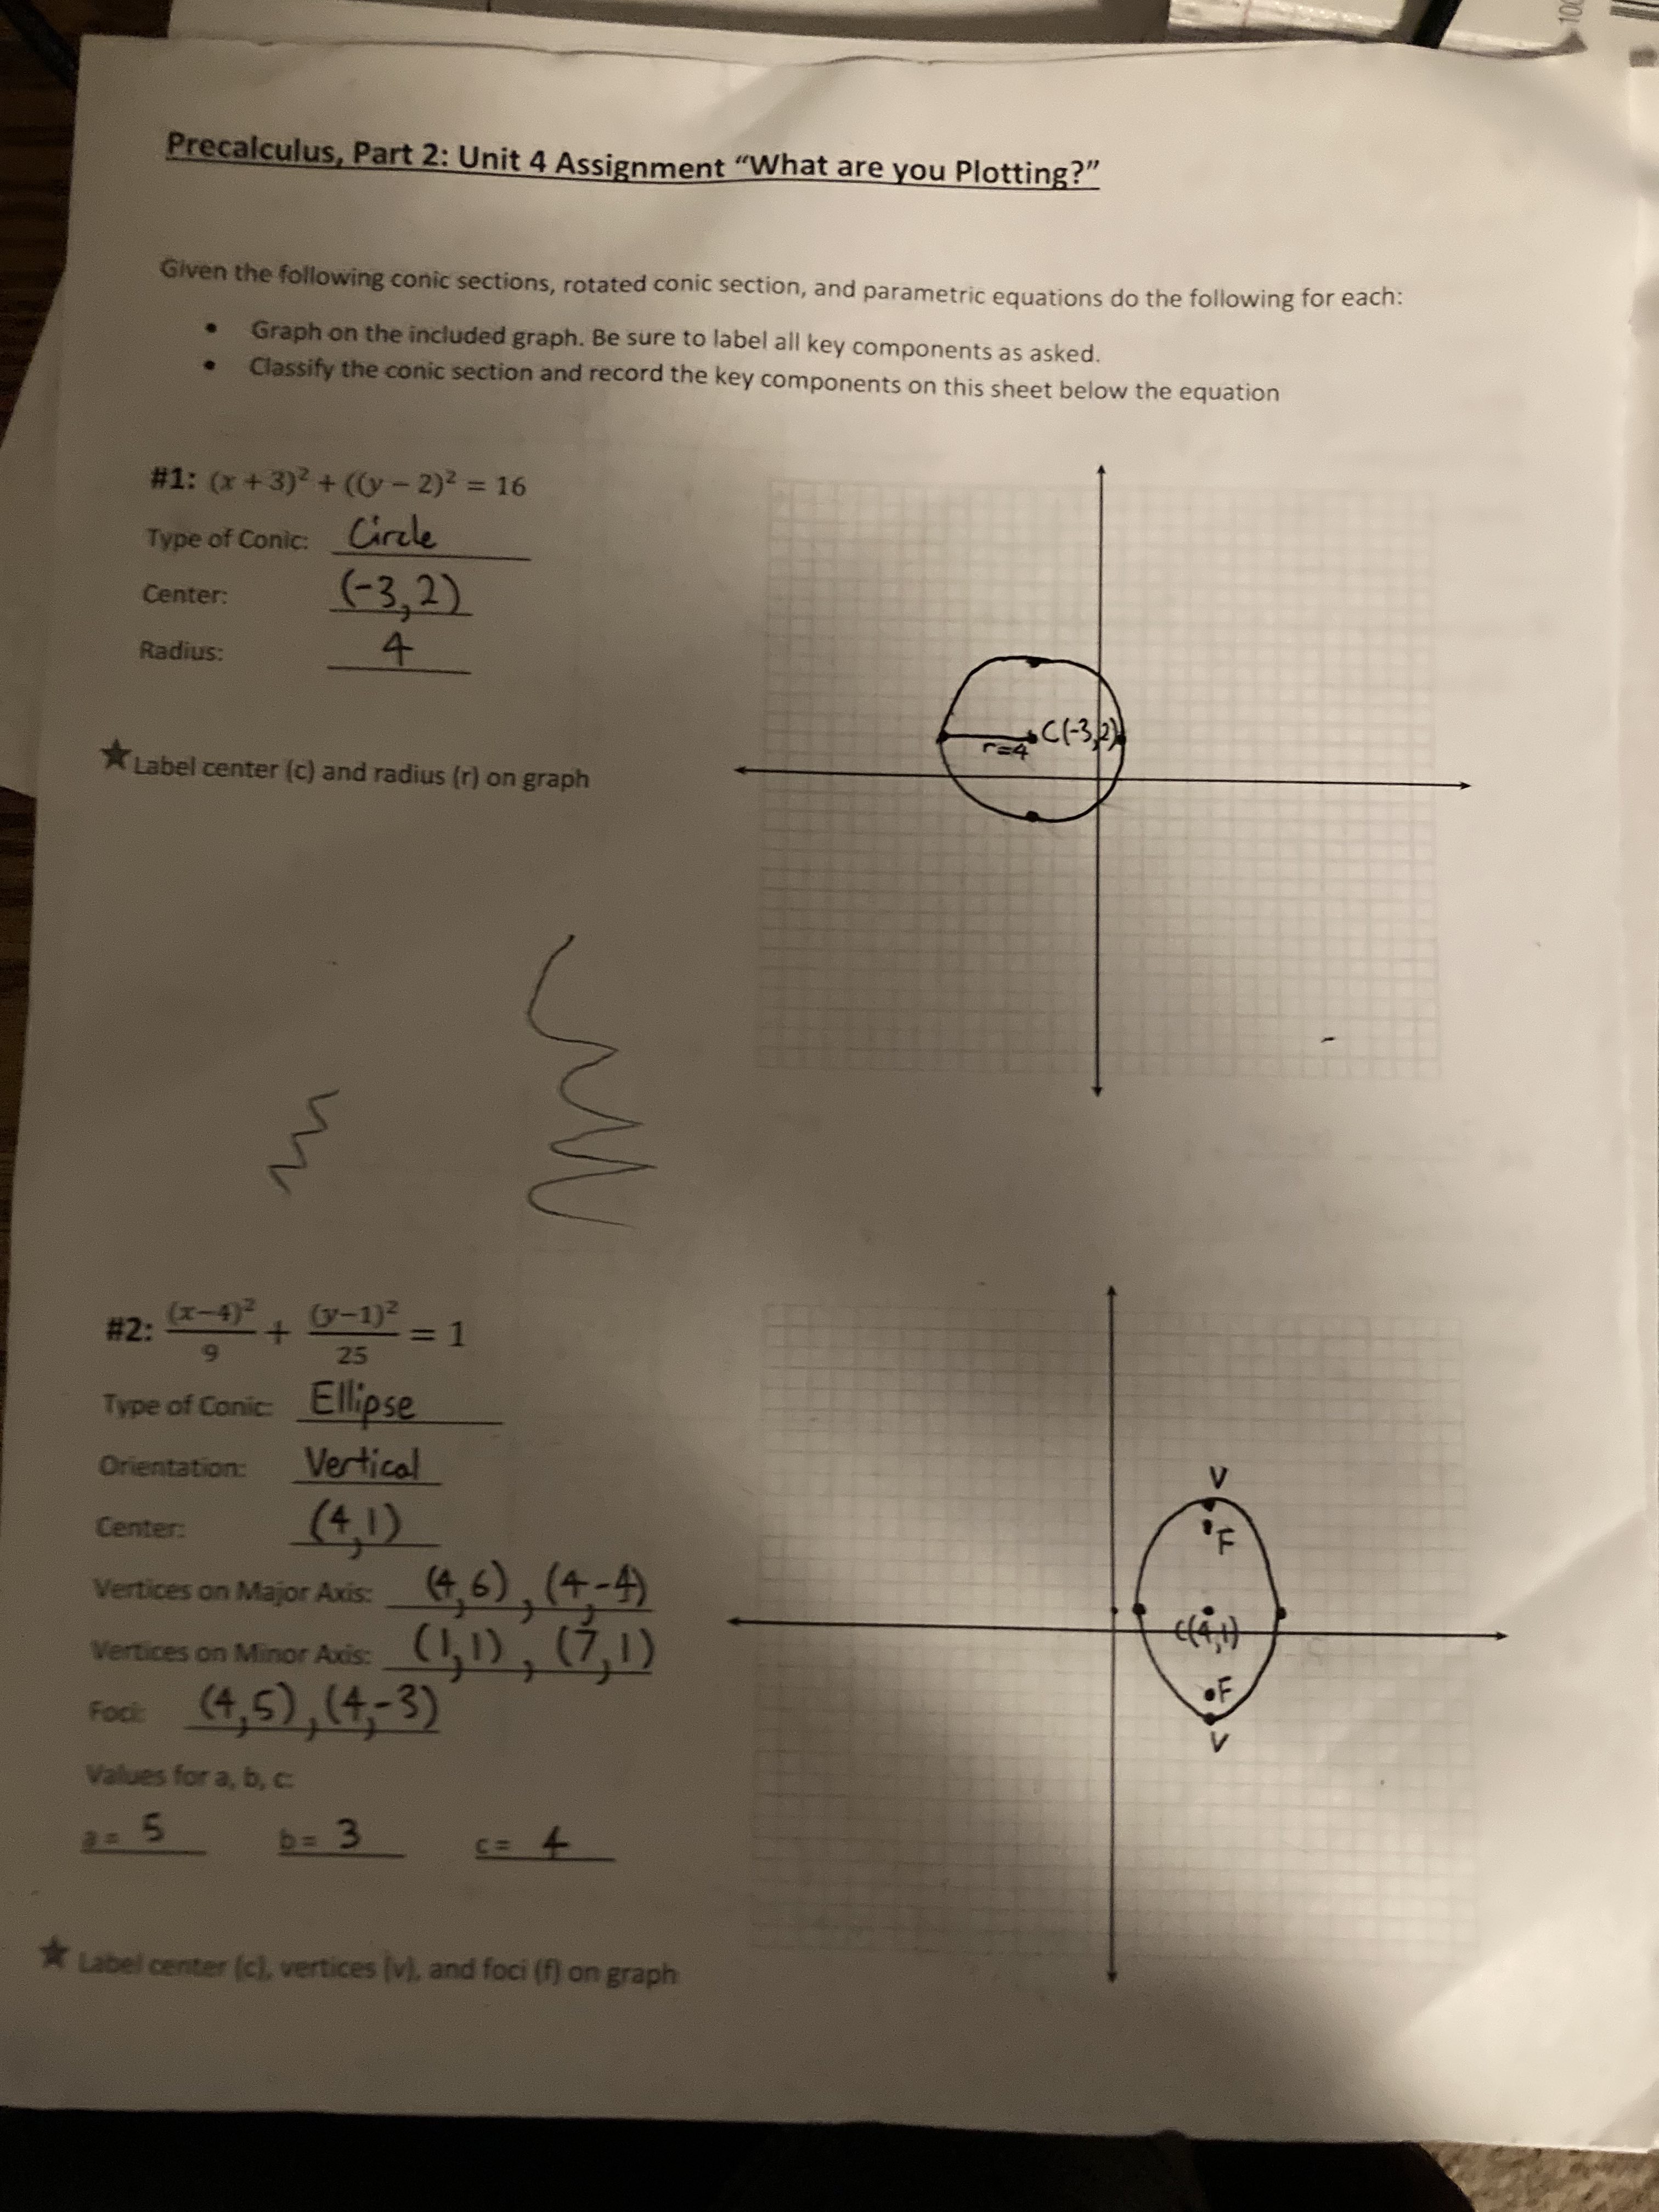 100
Precalculus, Part 2: Unit 4 Assignment “What are you Plotting?”
Given the following conic sections, rotated conic section, and parametric equations do the following for each:
• Graph on the included graph. Be sure to label all key components as asked.
• Classify the conic section and record the key components on this sheet below the equation
#1: (x + 3)² + ((y − 2)² = 16
Type of Conic: Circle
Center: (-3,2)
Radius: 4
C(-3,2)
r=4
★ Label center (c) and radius (r) on graph
#2: (x−4)²/9 + (y−1)²/25 = 1
Type of Conic: Ellipse
Orientation: Vertical
Center: (4,1)
Vertices on Major Axis: (4,6), (4,-4)
Vertices on Minor Axis: (1,1), (7,1)
Foci: (4,5), (4,-3)
Values for a, b, c:
a= 5 b= 3 c= 4
V
F
C(4,1)
F
V
★ Label center (c), vertices (v), and foci (f) on graph